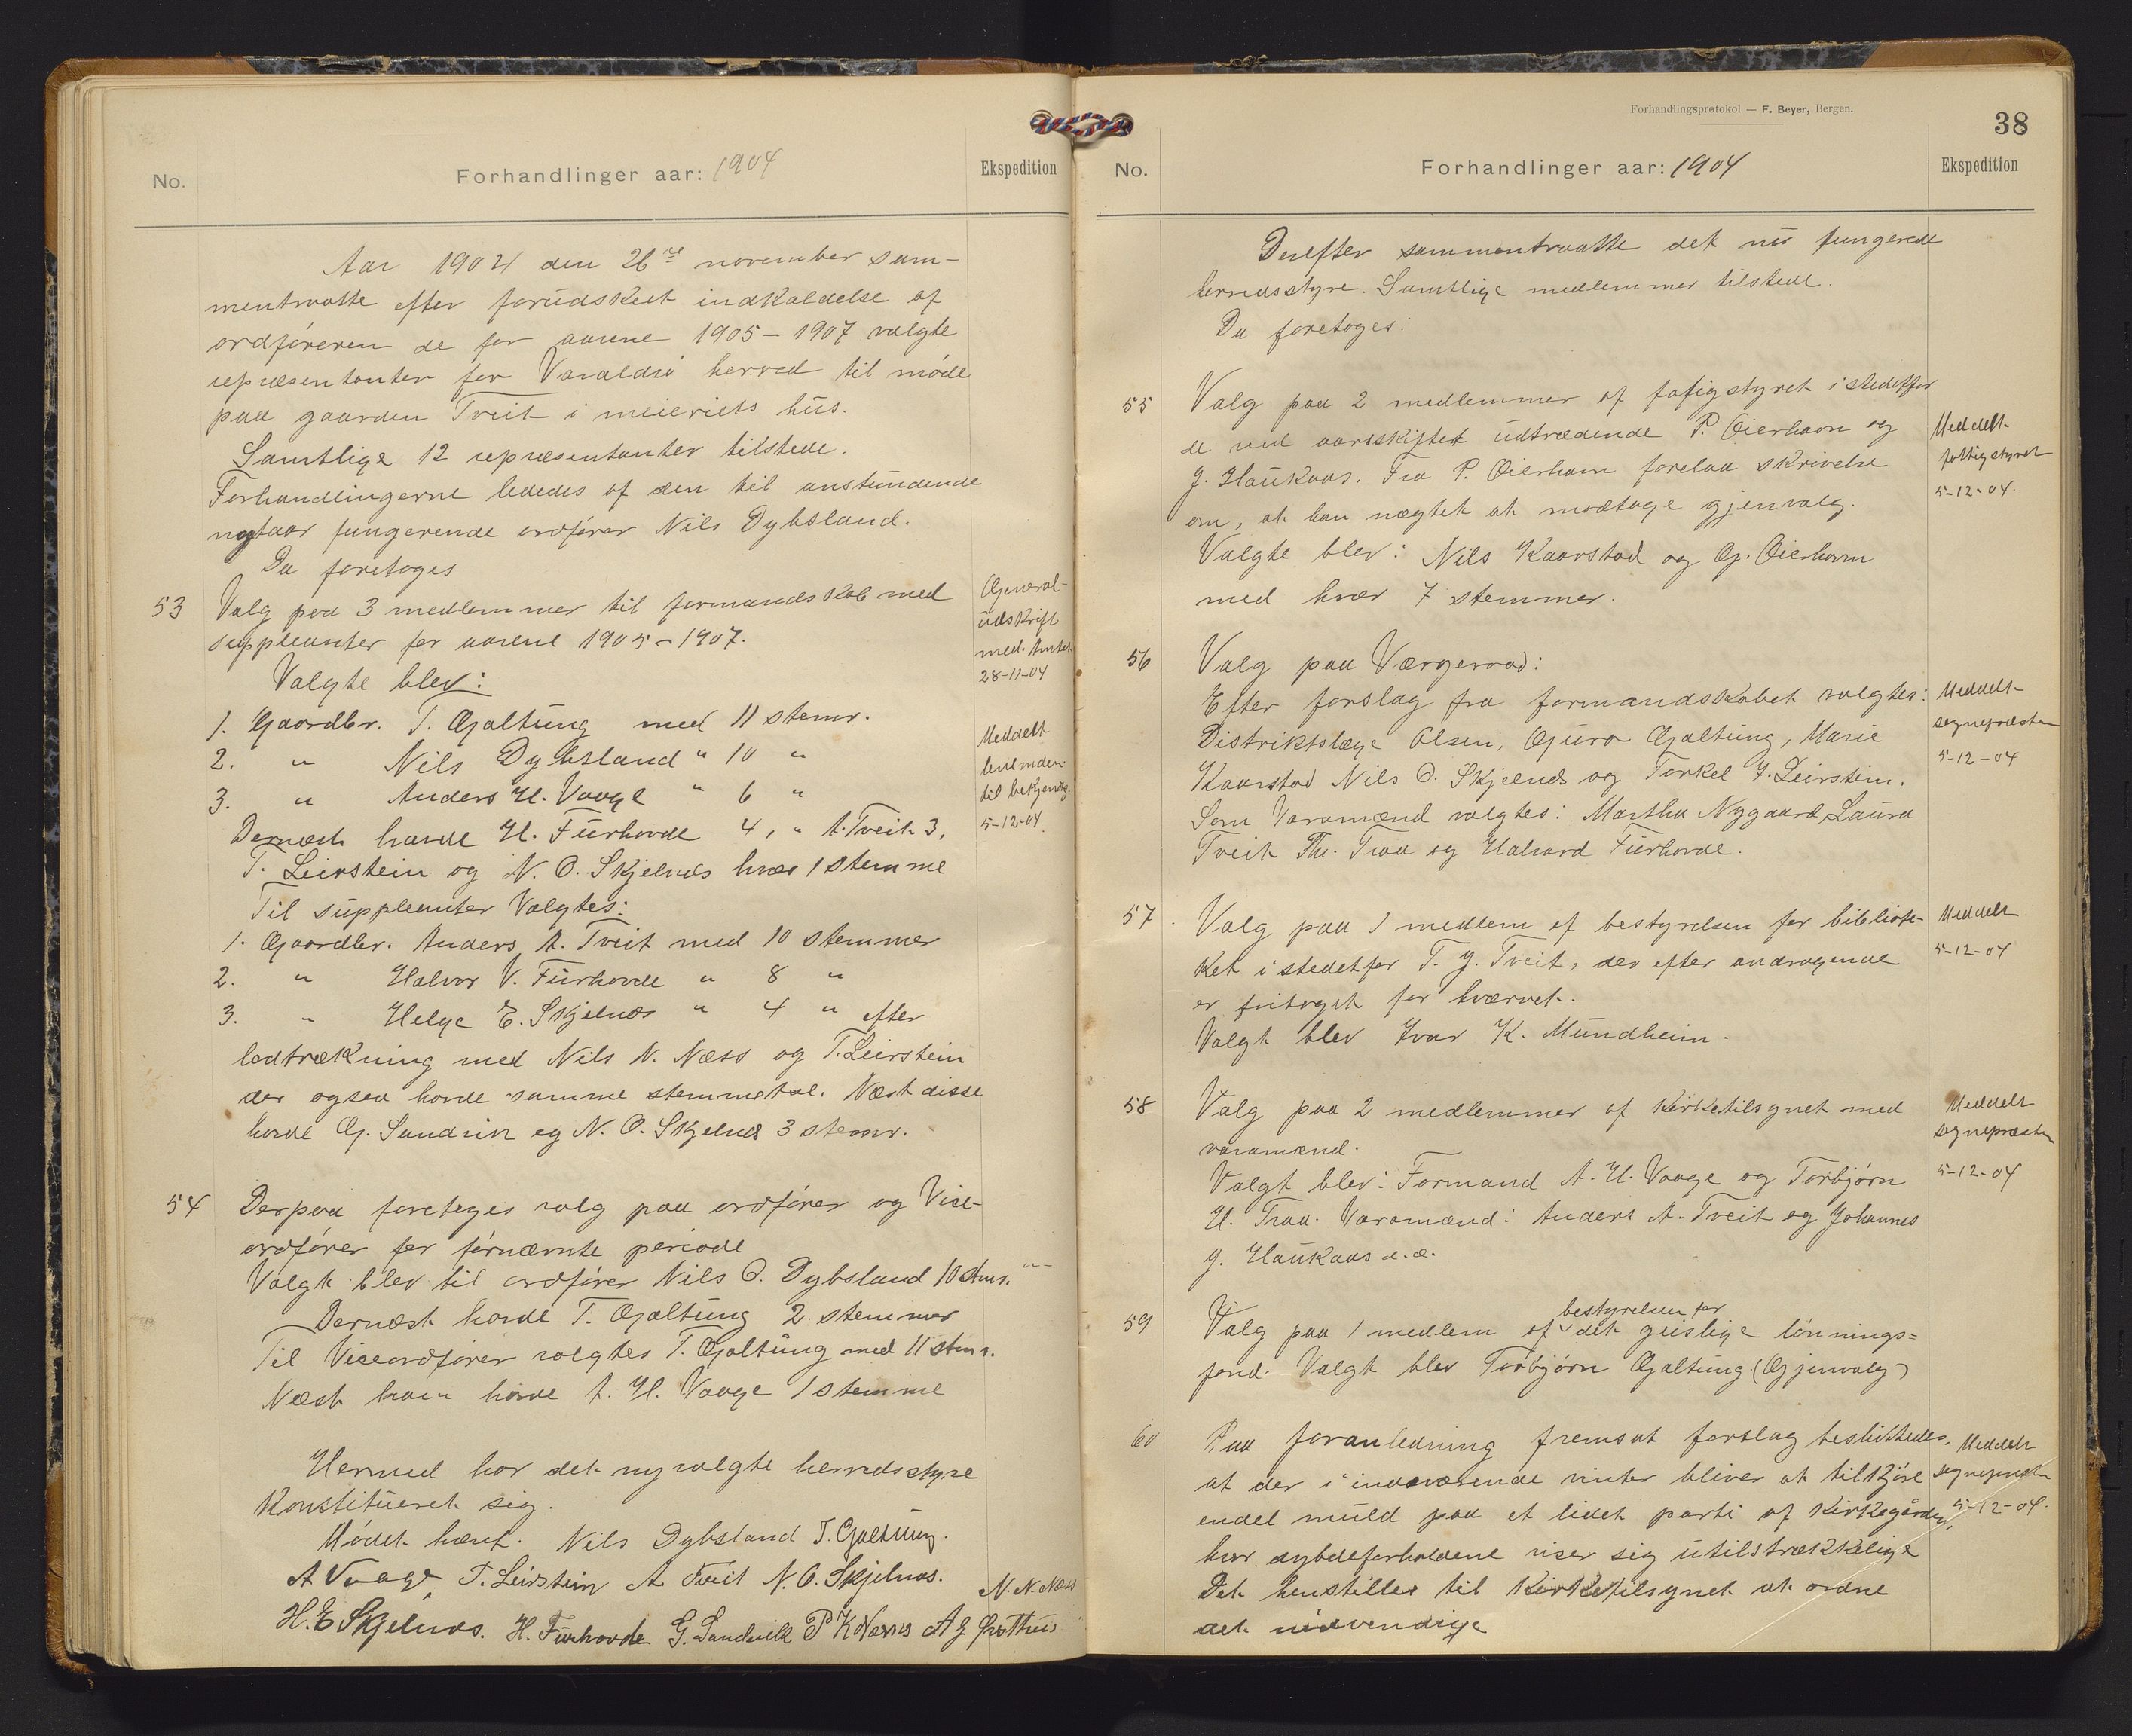 No.
Forhandlinger aar: 1904
Ekspedition
Aar 1904 den 26de november sam-
mentraatte efter forudskeet indkaldelse af
ordføreren de for aarene 1905-1907 valgte
repræsentanter for Varaldsø herred til møde
paa gaarden Tveit i meieriets hus.
Samtlige 12 repræsentanter tilstede.
Forhandlingerne lededes af den til anstundende
nytaar fungerende ordfører Nils Dybsland.
Da foretoges
53 Valg paa 3 medlemmer til formandskab med
suppleanter for aarene 1905-1907.
Valgte blev:
1. Gaardbr. T. Gjaltung med 11 stemr.
2. " Nils Dybsland " 10 "
3. " Anders H. Vaage " 6 "
Dernæst havde H. Furhovde 4, " A. Tveit 3,
T. Leirstein og N. O. Skjelnæs hver 1 stemme
Til suppleanter Valgtes:
1. Gaardbr. Anders A. Tveit med 10 stemmer
2. " Halvor V. Furhovde " 8 "
3. " Helge E. Skjelnæs " 4 " efter
lodtrækning med Nils N. Næss og T. Leirstein
der ogsaa havde samme stemmetal. Næst disse
havde G. Sandvik og N. O. Skjelnæs 3 stemr.
General-
udskrift
med. Amtet
28-11-04
Meddelt
lensmden
til bekjendtg.
5-12-04.
54 Derpaa foretoges valg paa ordfører og Vice-
ordfører for førnævnte periode
Valgt blev til ordfører Nils O. Dybsland 10 stmr. "
Dernæst havde T. Gjaltung 2 stemmer
Til Viceordfører valgtes T. Gjaltung med 11 stmr.
Næst ham havde A. H. Vaage 1 stemme
Hermed har det nyvalgte herredsstyre
Konstitueret sig.
Mødet hævet. Nils Dybsland T. Gjaltung.
A Vaage T. Leirstein A Tveit N. O. Skjelnæs. N. N. Næss
H. E Skjelnæs. H. Furhovde G. Sandvik P K Næss A G
Forhandlingsprotokol — F. Beyer, Bergen.
38
No.
Forhandlinger aar: 1904
Ekspedition
Derefter sammentraatte det nu fungerede
herredsstyre. Samtlige medlemmer tilstede.
Da foretoges:
55 Valg paa 2 medlemmer af fatigstyret istedetfor
de ved aarsskiftet udtrædende P. Øierhavn og
J. Haukaas. Fra P. Øierhavn forelaa skrivelse
om, at han nægtet at modtage gjenvalg.
Valgte blev: Nils Kaarstad og G. Øierhavn
med hver 7 stemmer.
Meddelt
fattigstyret
5-12-04.
56 Valg paa Værgeraad:
Efter forslag fra formandskabet valgtes:
Distriktslæge Olsen, Guro Gjaltung, Marie
Kaarstad Nils O. Skjelnæs og Torkel J. Leirstein.
Som Varamænd valgtes: Martha Nygaard, Laura
Tveit Th. Traa og Halvard Furhovde.
Meddelt
sognepræsten
5-12-04
57. Valg paa 1 medlem af bestyrelsen for bibliote-
ket istedetfor T. J. Tveit, der efter andragende
er fritaget for hvervet.
Valgt blev Ivar K. Mundheim.
Meddelt
5-12-04
58 Valg paa 2 medlemmer af Kirketilsynet med
varamænd.
Valgt blev: Formand A. H. Vaage og Torbjørn
H. Traa. Varamænd: Anders A. Tveit og Johannes
J. Haukaas d.æ.
Meddelt
sognepræsten
5-12-04
59 Valg paa 1 medlem af bestyrelsen for det geistlige lønnings=
fond. Valgt blev Torbjørn Gjaltung (Gjenvalg)
60 Paa foranledning fremsat forslag besluttedes,
at der i indeværende vinter bliver at tilkjøre
endel muld paa et lidet parti af Kirkegården,
hvor dybdeforholdene viser sig utilstrækkelige
Det henstilles til Kirketilsynet at ordne
det nødvendige
Meddelt
sognepræsten
5-12-04.